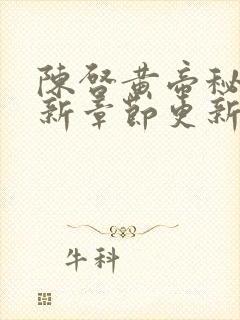 陳啓黃帝秘
新章節更新
牛科